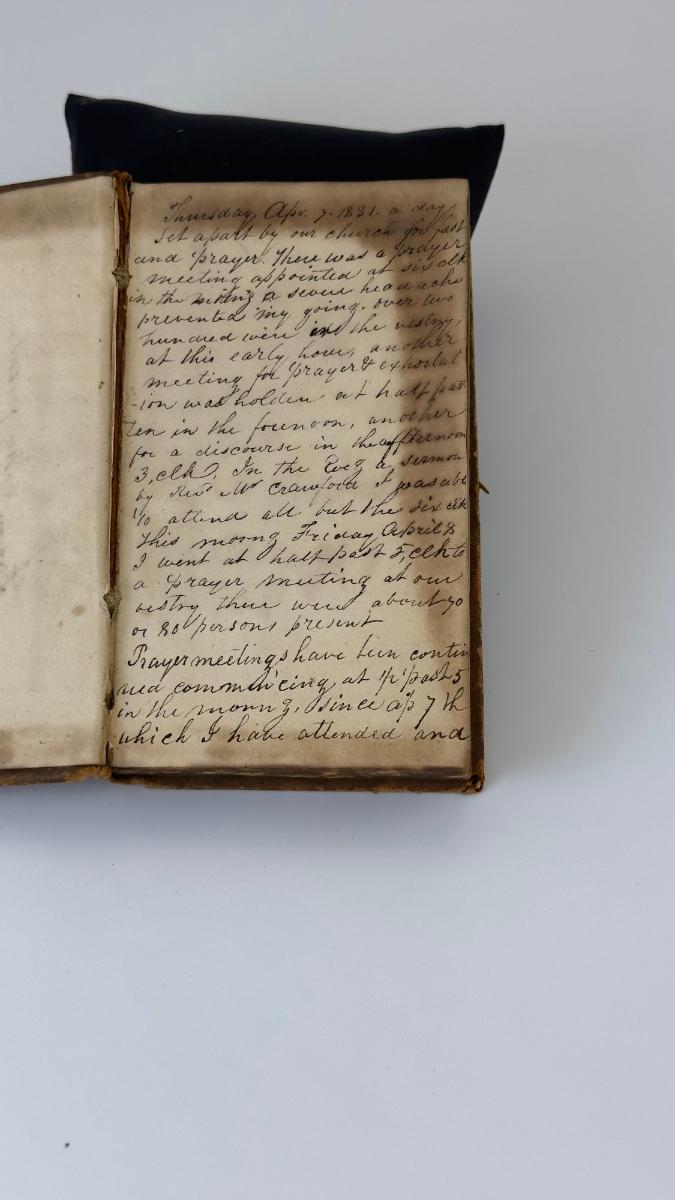 Thursday, Apr. 7. 1831. a day
set apart by our church for fast
and prayer. There was a prayer
meeting appointed at six clk
in the morng a severe head ache
prevented my going. over two
hundred were in the vestry,
at this early hour, another
meeting for prayer & exhortat
-ion was holden at half past
ten in the forenoon, another
for a discourse in the afternoon
3, clk. In the Eveg a sermon
by Revd Mr Crawford I was able
to attend all but the six clk
This morng Friday April 8
I went at half past 5, clk to
a prayer meeting at our
vestry there were about 70
or 80 persons present
Prayer meetings have been contin
ued commencing at ½ past 5
in the morng, since ap 7 th
which I have attended and